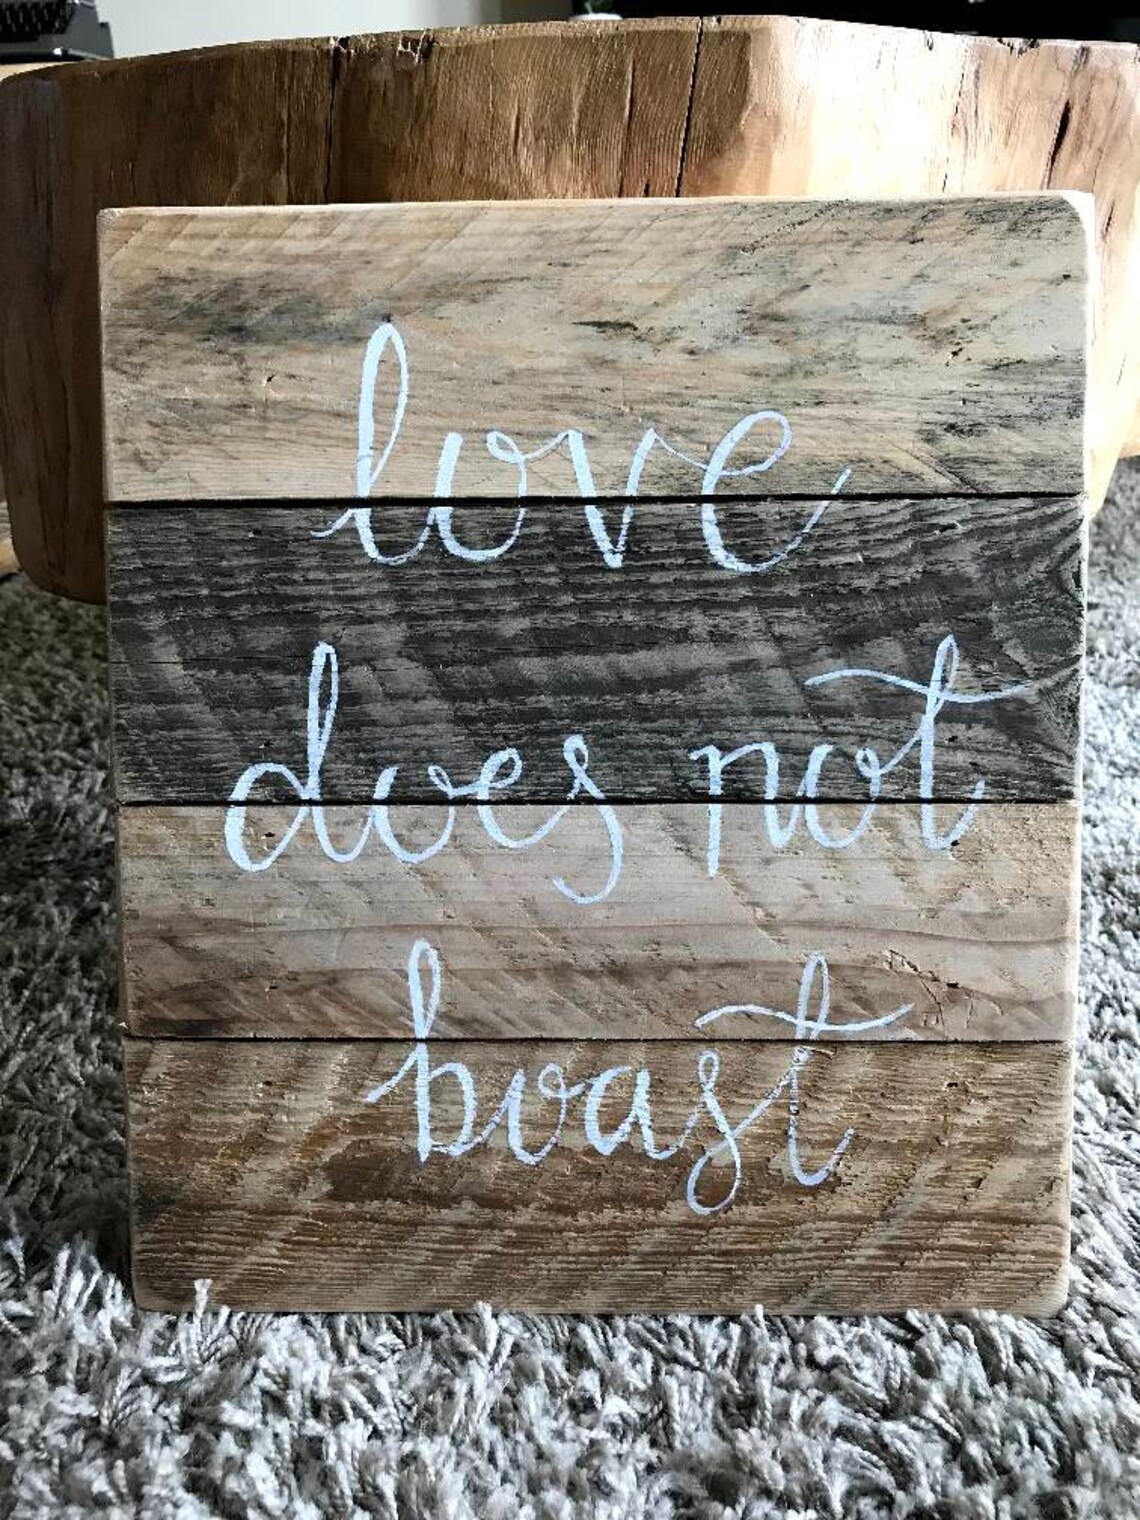 love
does not
boast